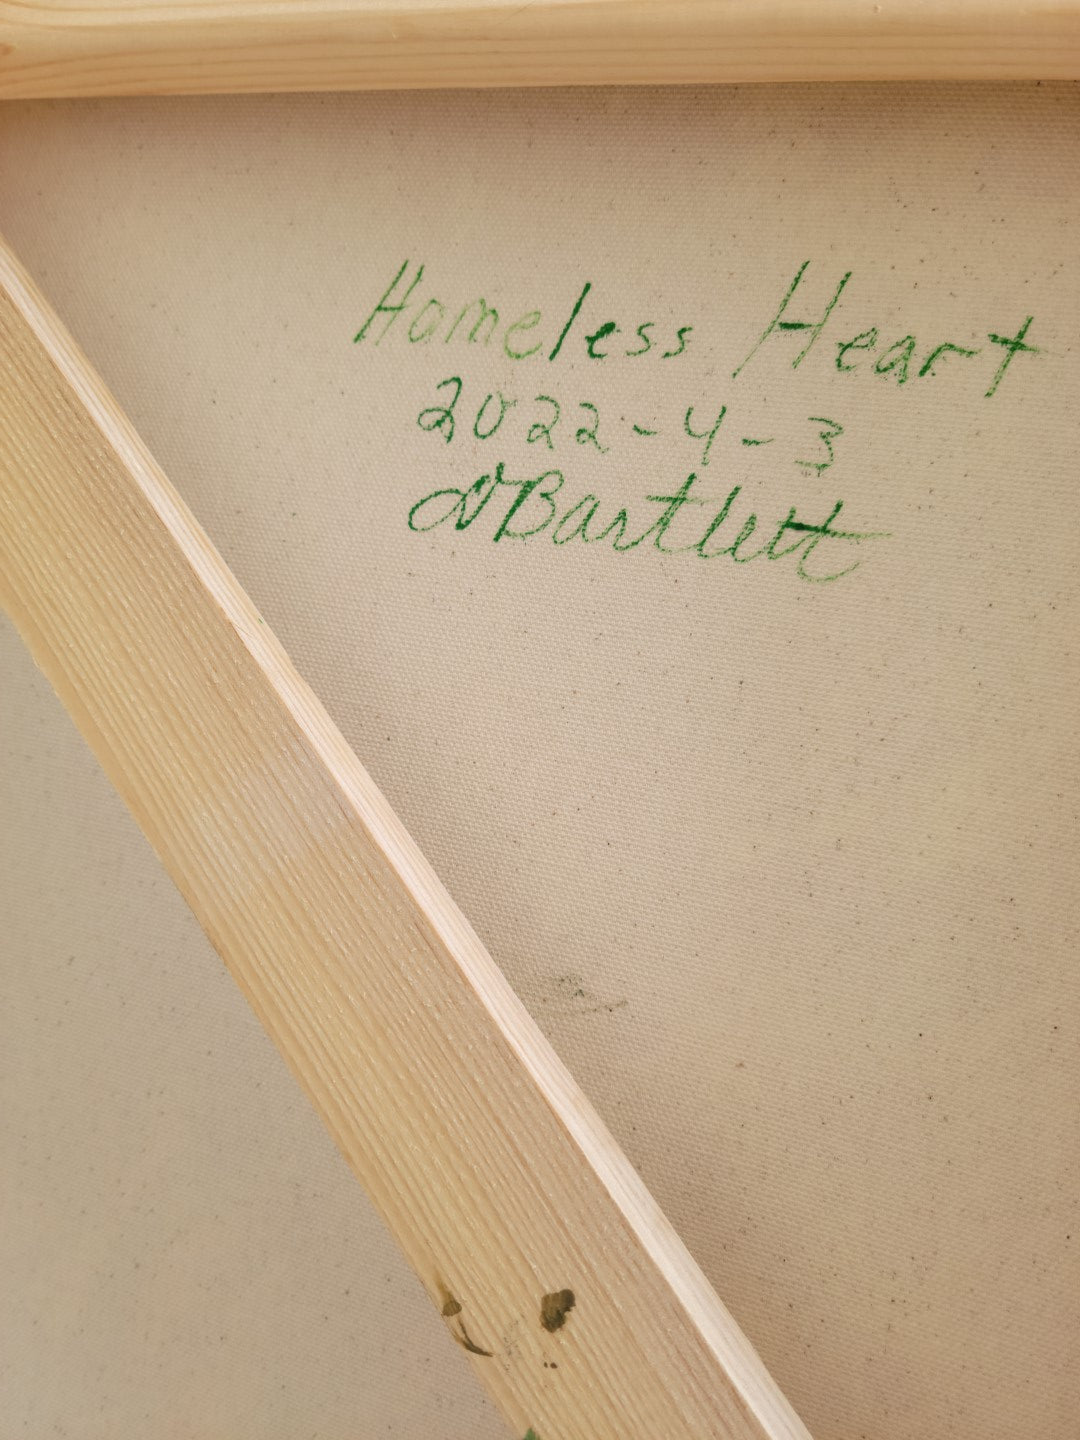 Homeless Heart
2022-4-3
DBartlett